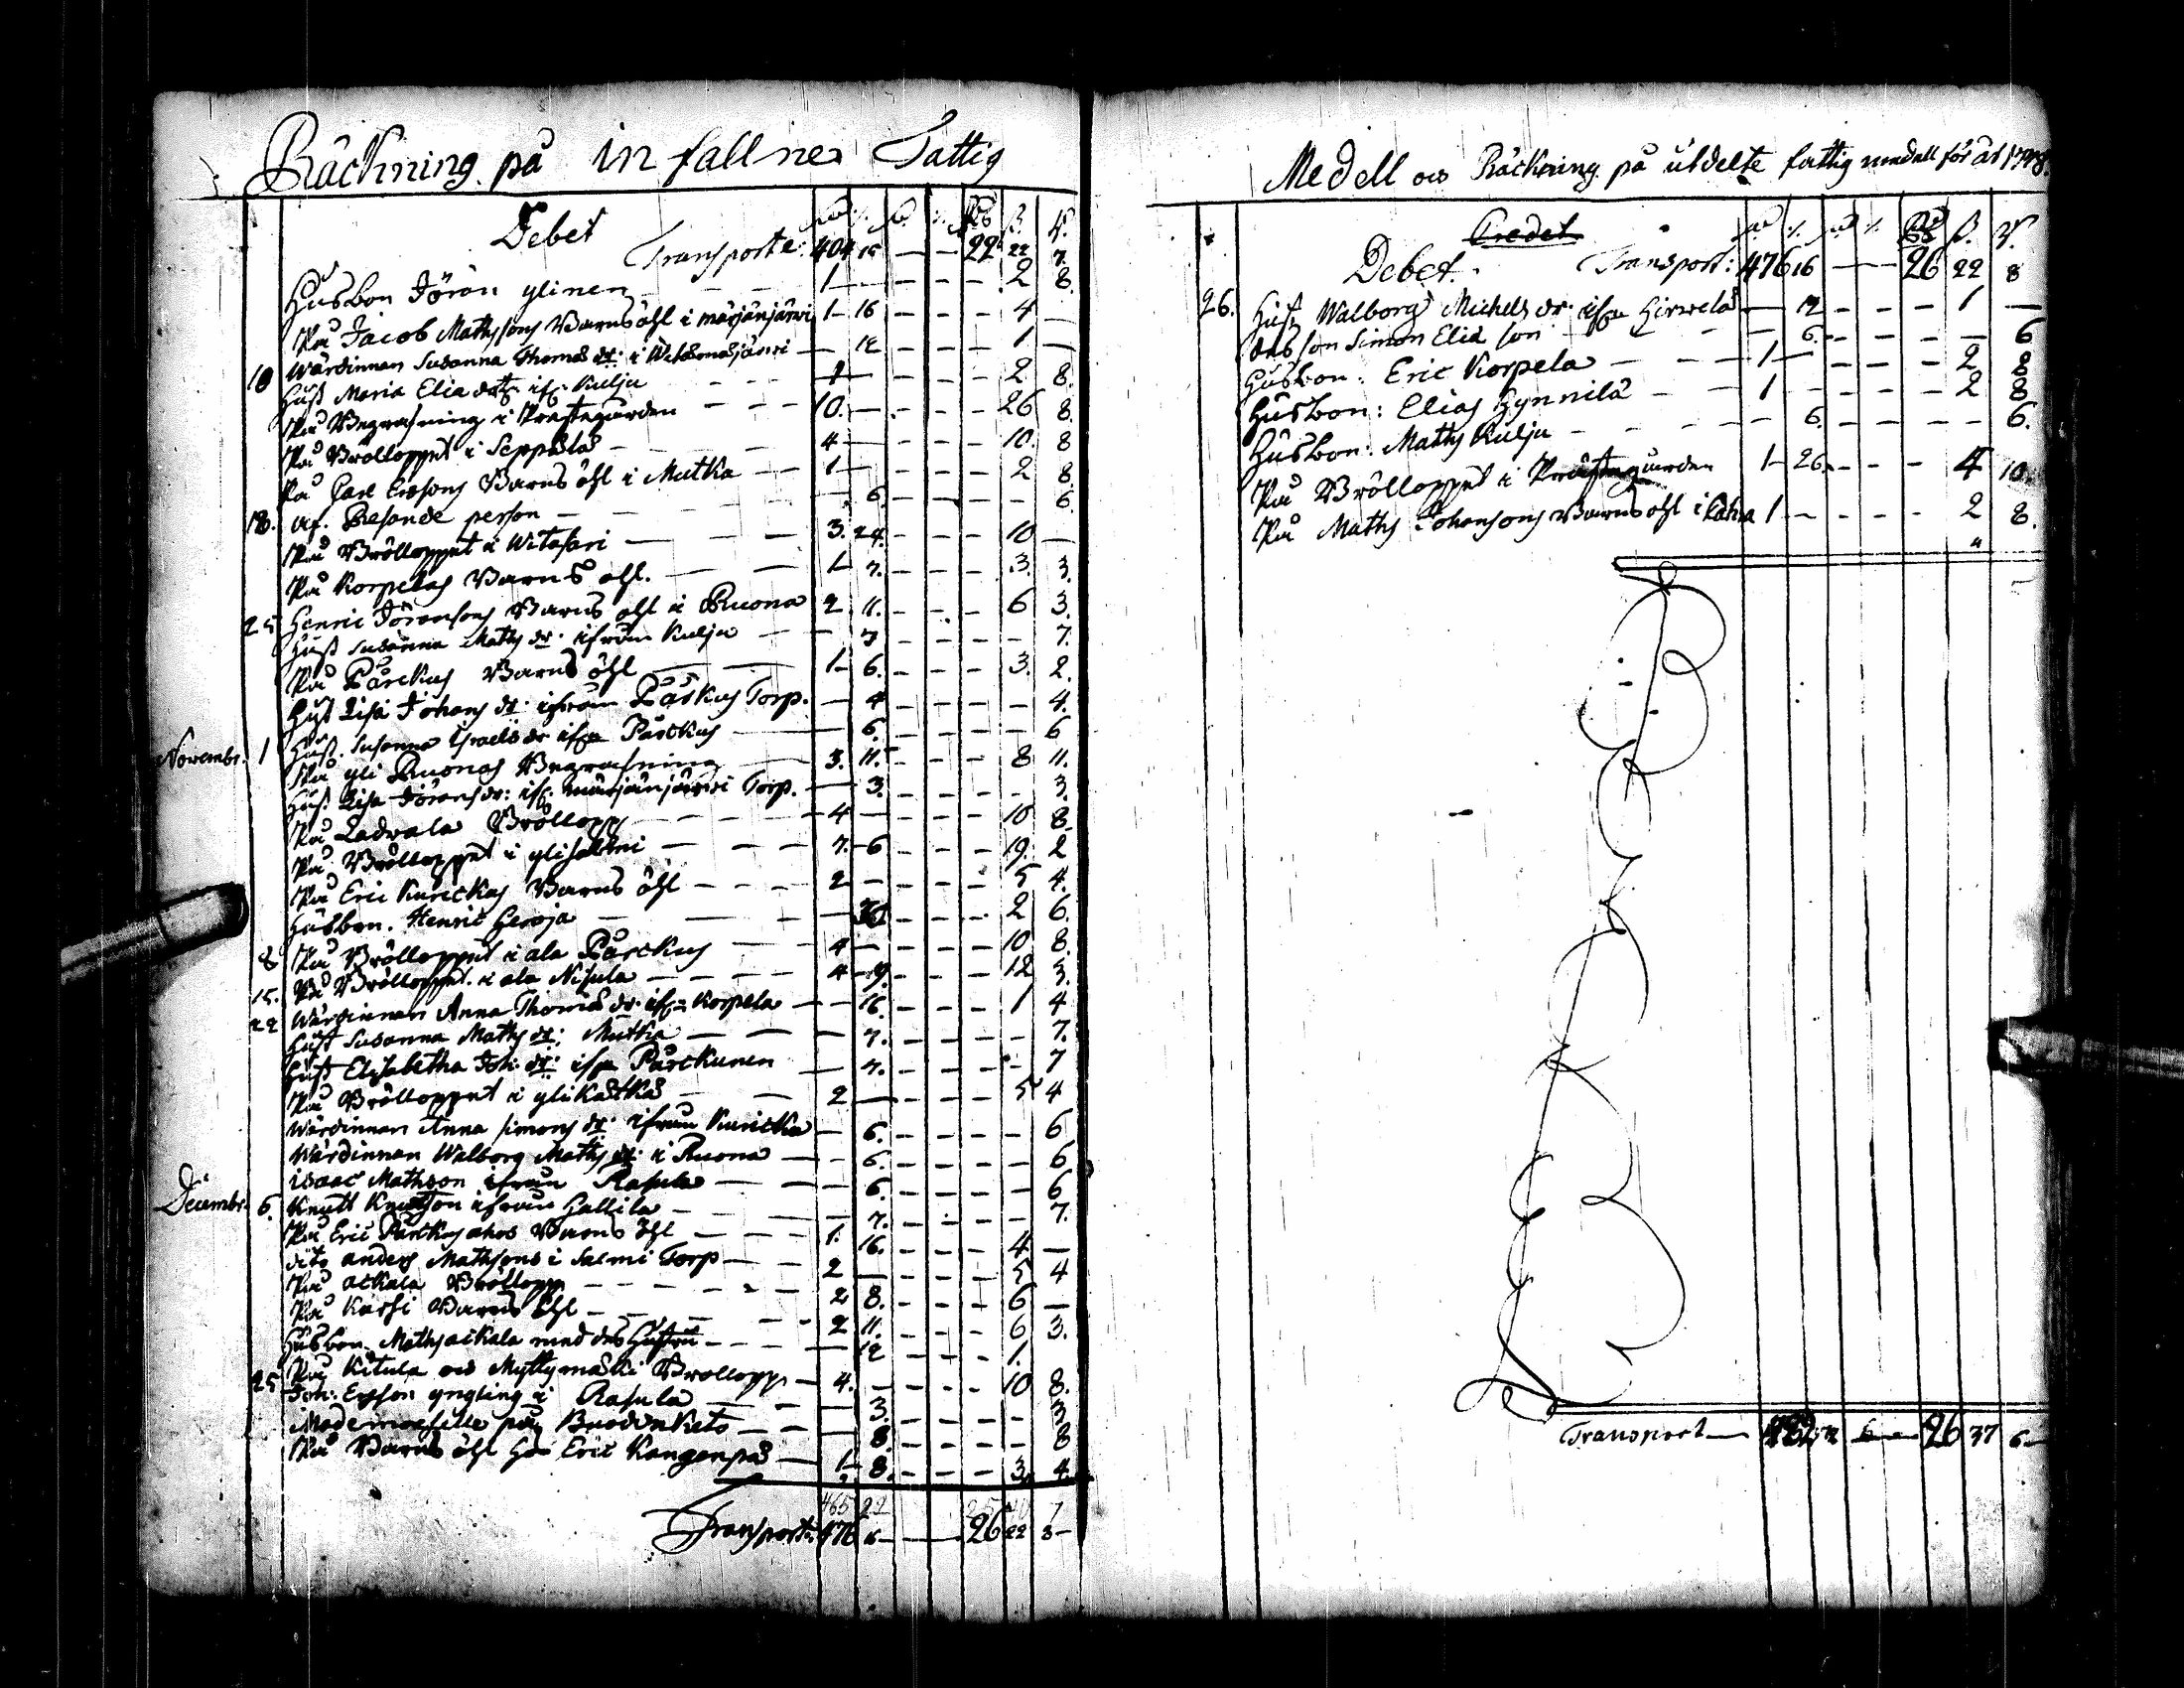 Räckning på in fallne Fattig
Debet
Transporte: 404 15 — — 22 22 7.
Husbon Jöran ylinen 1 — — — — 2 8.
På Jacob Mathssons Barns öhl i märjänjärwi 1 16 — — — 4 —
Wärdinnan Susanna Thomas dr. i — 12 — — — 1 —
10 Hust Maria Elia dotr ifr. Kulju 1 — — — — 2 8.
På Begrafning i Prästegården 10. — — — — 26 8.
På Bröllopet i Seppälä 4 — — — — 10. 8
På Carl Ersons Barns öhl i Mutka 1 — — — — 2 8.
18. af. Resande person — 6. — — — — 6.
På Bröllopet i Witasari 3. 24. — — — 10 —
På Korpelas Barns ohl. 1 7. — — — 3. 3.
25 Henric Jöransons Barns ohl i Ruona 2. 11. — — — 6 3.
Hust Susanna Maths dr. ifrån Kulju — 7 — — — — 7.
På Pärckus Barns öhl 1 6. — — — 3. 2.
Hust Lisa Johans dr. ifrån Päskus Torp. — 4 — — — — 4.
Novembr. 1 Hust. Susanna Israels dr ifrn Parckus — 6. — — — — 6
På yli Ruonas Begrafning 3. 11. — — — 8 11.
Hust Lisa Jörans dr: ifr. märjänjärwi Torp. — 3. — — — — 3.
På Ladvala Bröllopp 4 — — — — 10 8.
På Bröllopet i ylisalmi 7. 6 — — — 19. 2
På Eric Kurickas Barns öhl 2 — — — — 5 4.
Husbon. Henric Heroja — — — — 2 6.
8 På Bröllopet i ala Pärckus 4 — — — — 10 8.
15. På Bröllopet i ala Nisula 4 19. — — — 12 3.
22 Wärdinnan Anna Thomas dr. ifrn Korpela — 16. — — — 1 4
Hust Susanna Maths dr: Mutka — 7. — — — — 7.
Hust Elisabetha Joh: dr: ifrn Pärckunen — 7. — — — — 7
På Bröllopet i ylikätkä 2 — — — — 5 4
Wärdinnan Anna Simons dr. ifrån Kuricka — 6. — — — — 6
Wärdinnan Walborg Maths dr. i Ruona — 6. — — — — 6
Isaac Mathson ifrån Rasula — 6. — — — — 6
Decembr. 6. Knutt Knutson ifrån Hallila — 7. — — — — 7.
På Eric Parckus Barns öhl 1. 16. — — — 4 —
dito anders Mathsons i Salmi Torp 2 — — — — 5 4
På Ackala Bröllopp 2 8. — — — 6 —
På Karhi Barns öhl 2 11. — — — 6 3.
Husbon. Maths ackala med des Hustru — 12 — — — 1.
25 På Kitula och Myllymäcki Brollopp 4. — — — — 10 8.
Joh: Ersson yngling i Rasula — 3. — — — — 3
Mademoiselle på — 8. — — — — 8
På Barns öhl hos Eric Kangenpä 1 8. — — — 3. 4.
465 22 25 7
Transporte: 476 16 — — 26 22 8
Medell och Räckning på utdelte fattig medell för år 1798.
Credet
Debet. Transport: 476 16 — — 26 22 8
26. Hust Walborg Michels dr. ifrn Hirwelä — 12 — — — 1 —
des son Simon Elia son — 6. — — — — 6
Husbon: Eric Korpela 1 — — — — 2 8
Husbon: Elias Hynnilä 1 — — — — 2 8
Husbon: Maths Kulju — 6. — — — — 6.
På Bröllopet i Prästegården 1 26. — — — 4 10.
På Maths Johansons Barns ohl i 1 — — — — 2 8.
Transport — 26 37 6